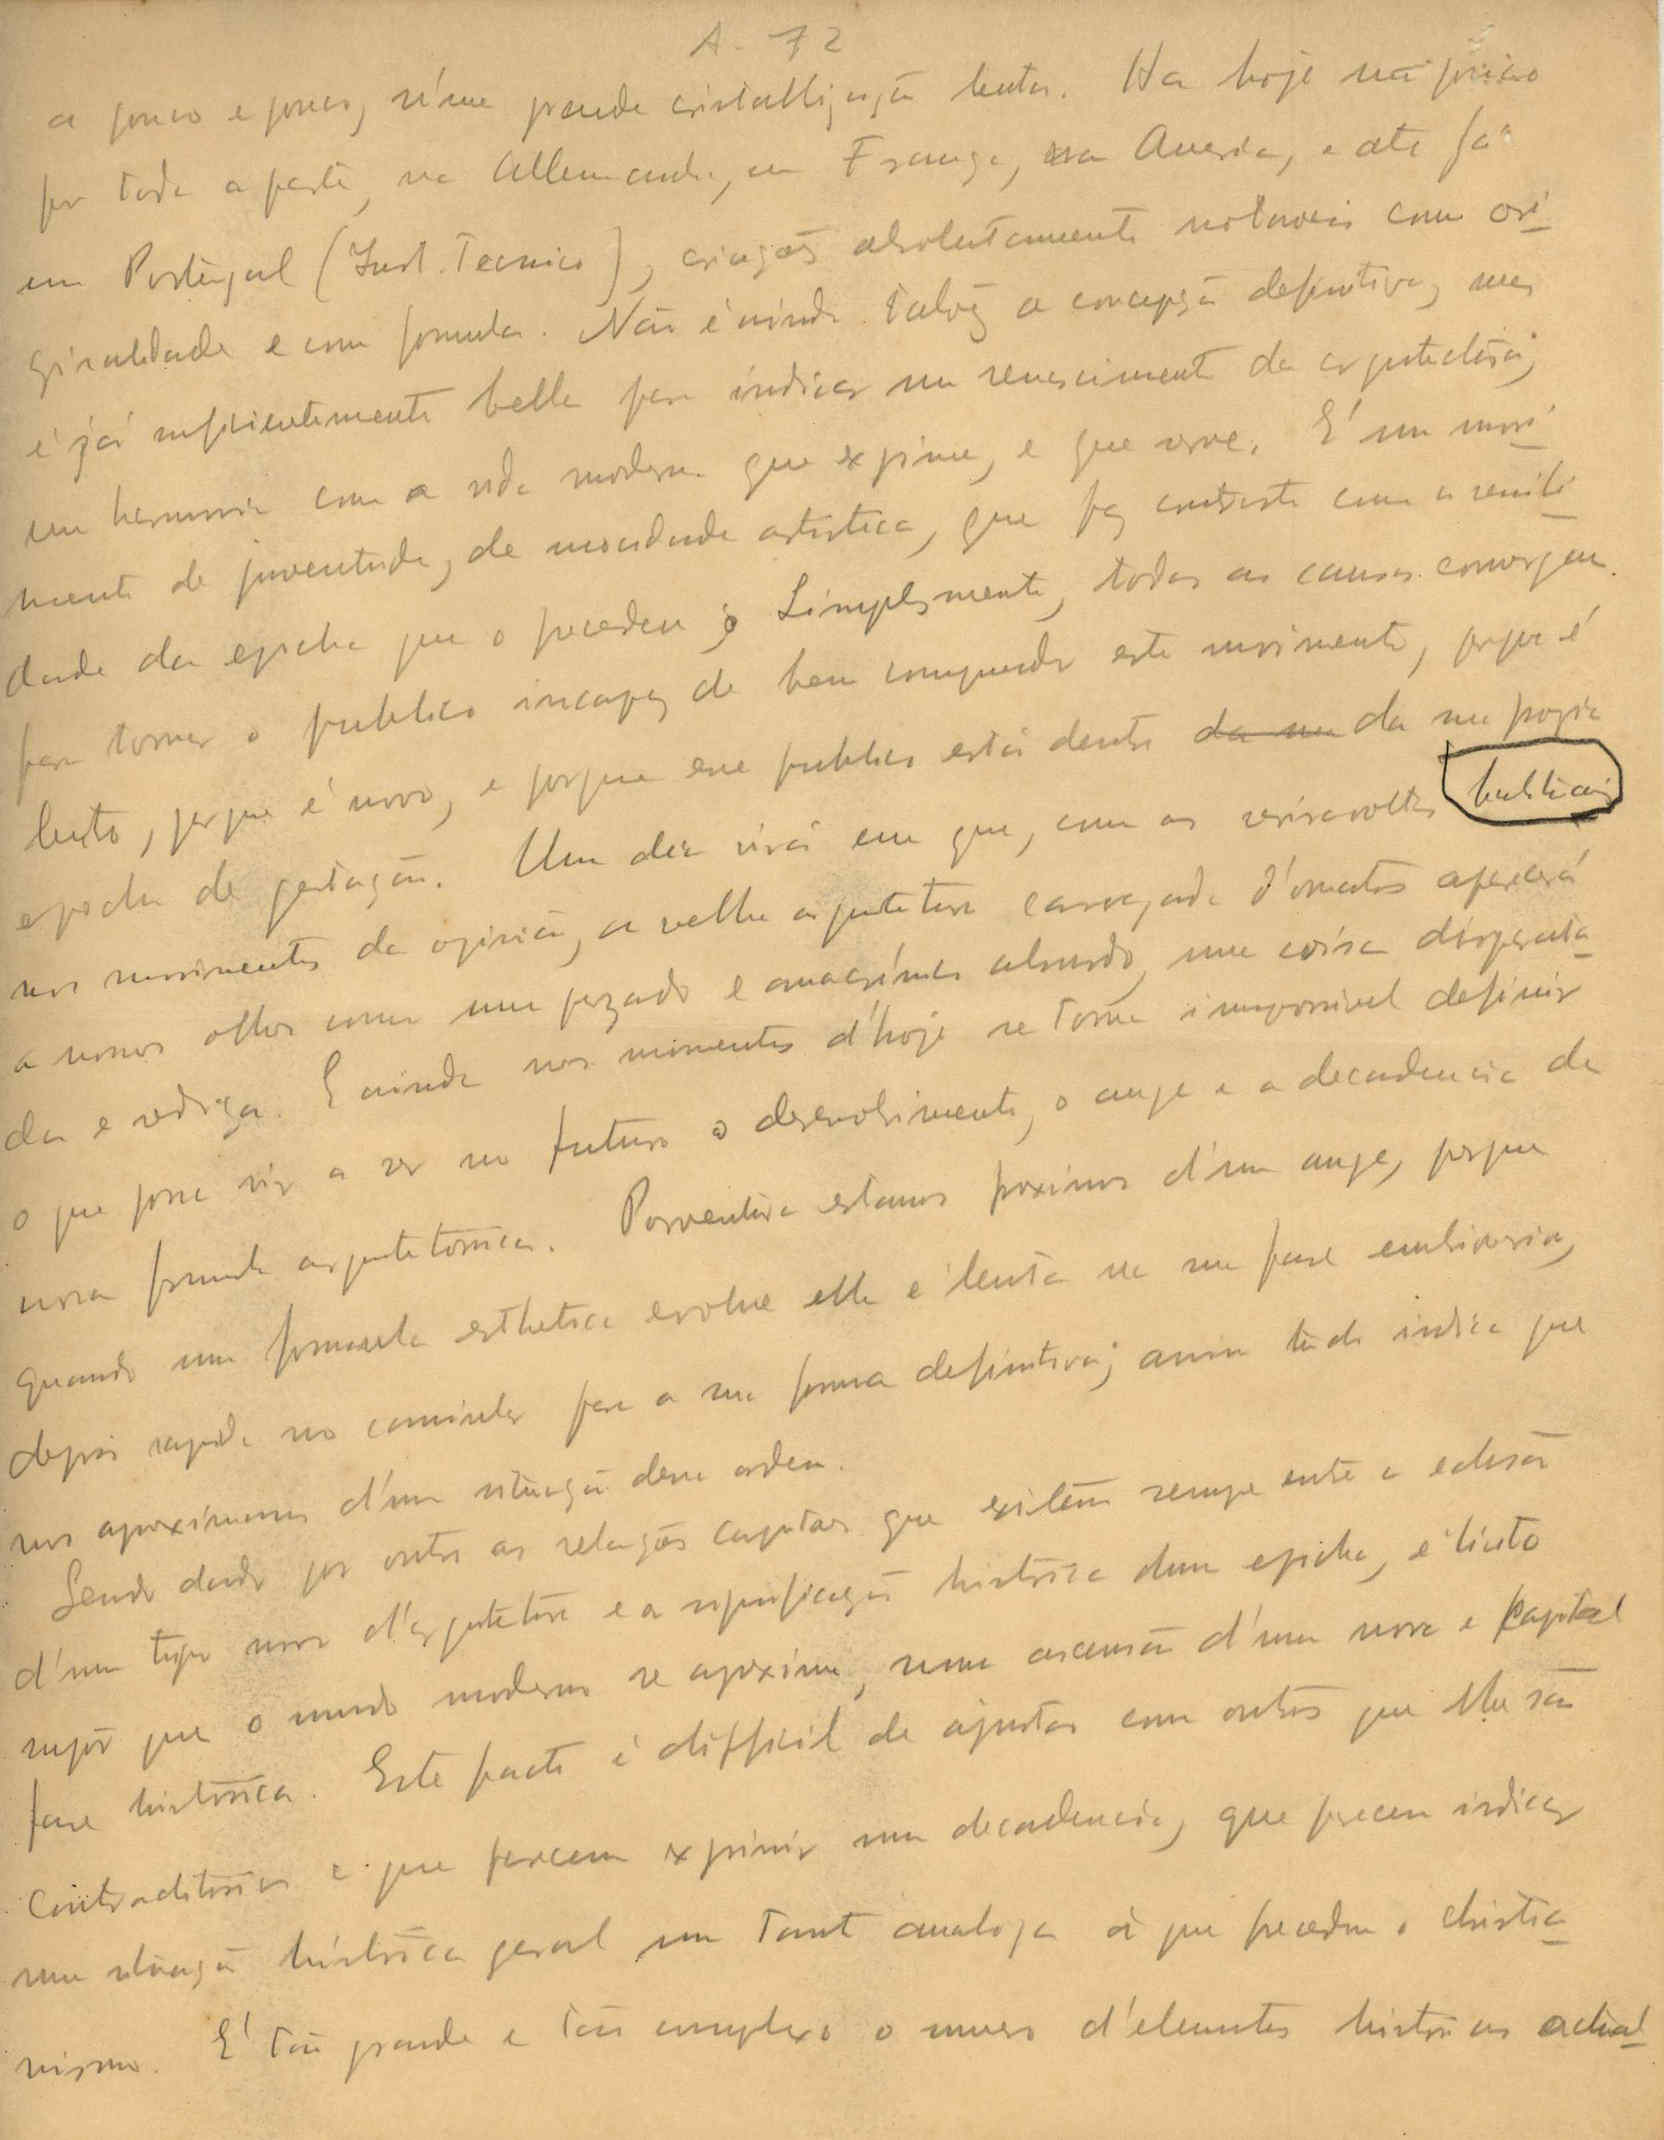 A. 72
a pouco e pouco, n'uma grande cristallização lenta. Ha hoje um pouco
por toda a parte, na Allemanha, em França, na America, e até já
em Portugal (Inst. Tecnico), criações absolutamente notaveis com ori-
ginalidade e com formula. Não é ainda talvez a concepção definitiva, mas
é já sufficientemente bella para indicar um renascimento da arquitectura,
em harmonia com a vida moderna que exprime, e que serve. É um movi-
mento de juventude, de mocidade artistica, que faz contraste com a senili-
dade da epocha que o precedeu; Simplesmente, todas as causas convergem
para tornar o publico incapaz de bem comprehender este movimento, porque é
lento, porque é novo, e porque esse publico está dentro da sua da sua propria
epocha de gestação. Um dia virá em que, com as reviravoltas habituais
nos movimentos da opinião, a velha arquitetura carregada d'ornatos aparecerá
a nossos olhos como um pezado e anacrónico absurdo, uma coisa disparata-
da e vesga. E ainda nos momentos d'hoje se torna impossivel definir
o que possa vir a ser no futuro o desenvolvimento, o auge e a decadencia da
nova formula arquitetonica. Porventura estamos proximos d'um auge, porque
quando uma formula esthetica evolue ella é lenta na sua fase embrionaria,
depois rapida no caminhar para a sua forma definitiva; assim tudo indica que
nos aproximamos d'uma situação dessa ordem.
Sendo dado por outro as relações capitaes que existem sempre entre a eclosão
d'um typo novo d'arquitetura e a significação historica duma epocha, é licito
supôr que o mundo moderno se aproxima, numa ascensão d'uma nova e capital
fase historica. Este facto é difficil de ajustar com outros que lhe são
contraditorios e que parecem exprimir uma decadencia, que parecem indicar
uma situação histórica geral um tanto analoga á que precedeu o christia-
nismo. É tão grande e tão complexo o numero d'elementos historicos actual-